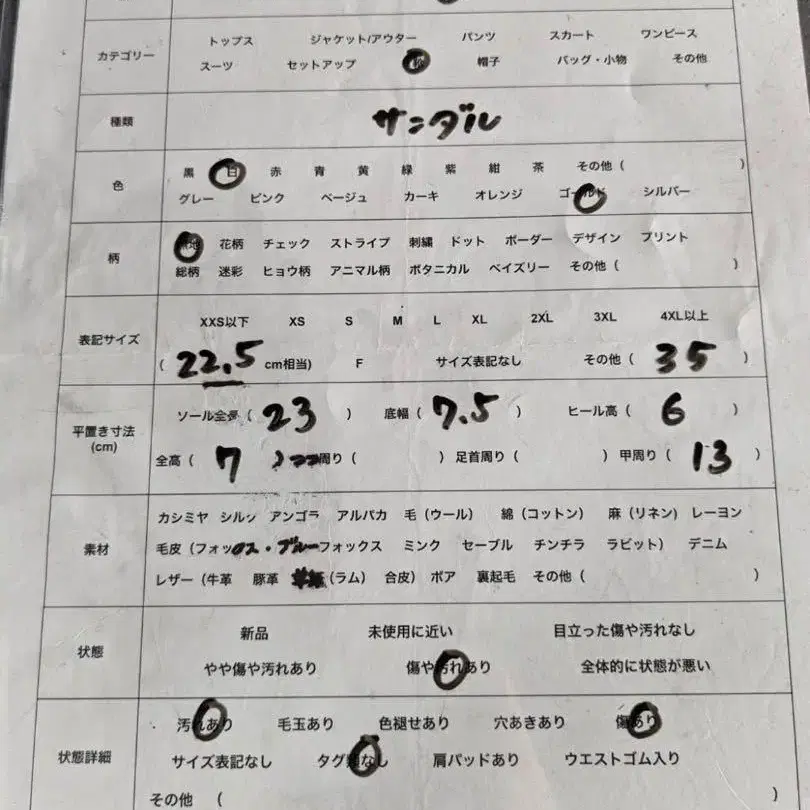 トップス ジャケット/アウター パンツ スカート ワンピース
カテゴリー
スーツ セットアップ 帽子 バッグ・小物 その他
種類 サンダル
黒 白 赤 青 黄 緑 紫 紺 茶 その他 ( )
色
グレー ピンク ベージュ カーキ オレンジ ゴールド シルバー
無地 花柄 チェック ストライプ 刺繍 ドット ボーダー デザイン プリント
柄
総柄 迷彩 ヒョウ柄 アニマル柄 ボタニカル ペイズリー その他 ( )
XXS以下 XS S M L XL 2XL 3XL 4XL以上
表記サイズ
( 22.5 cm相当) F サイズ表記なし その他 ( 35 )
ソール全長 ( 23 ) 底幅 ( 7.5 ) ヒール高 ( 6 )
平置き寸法
(cm)
全高 ( 7 ) 周り ( ) 足首周り ( ) 甲周り ( 13 )
カシミヤ シルク アンゴラ アルパカ 毛 (ウール) 綿 (コットン) 麻 (リネン) レーヨン
素材
毛皮 (フォックス・ブルーフォックス ミンク セーブル チンチラ ラビット) デニム
レザー (牛革 豚革 (ラム) 合皮) ボア 裏起毛 その他 ( )
新品 未使用に近い 目立った傷や汚れなし
状態
やや傷や汚れあり 傷や汚れあり 全体的に状態が悪い
汚れあり 毛玉あり 色褪せあり 穴あきあり 傷あり
状態詳細
サイズ表記なし タグ類なし 肩パッドあり ウエストゴム入り
その他 ( )